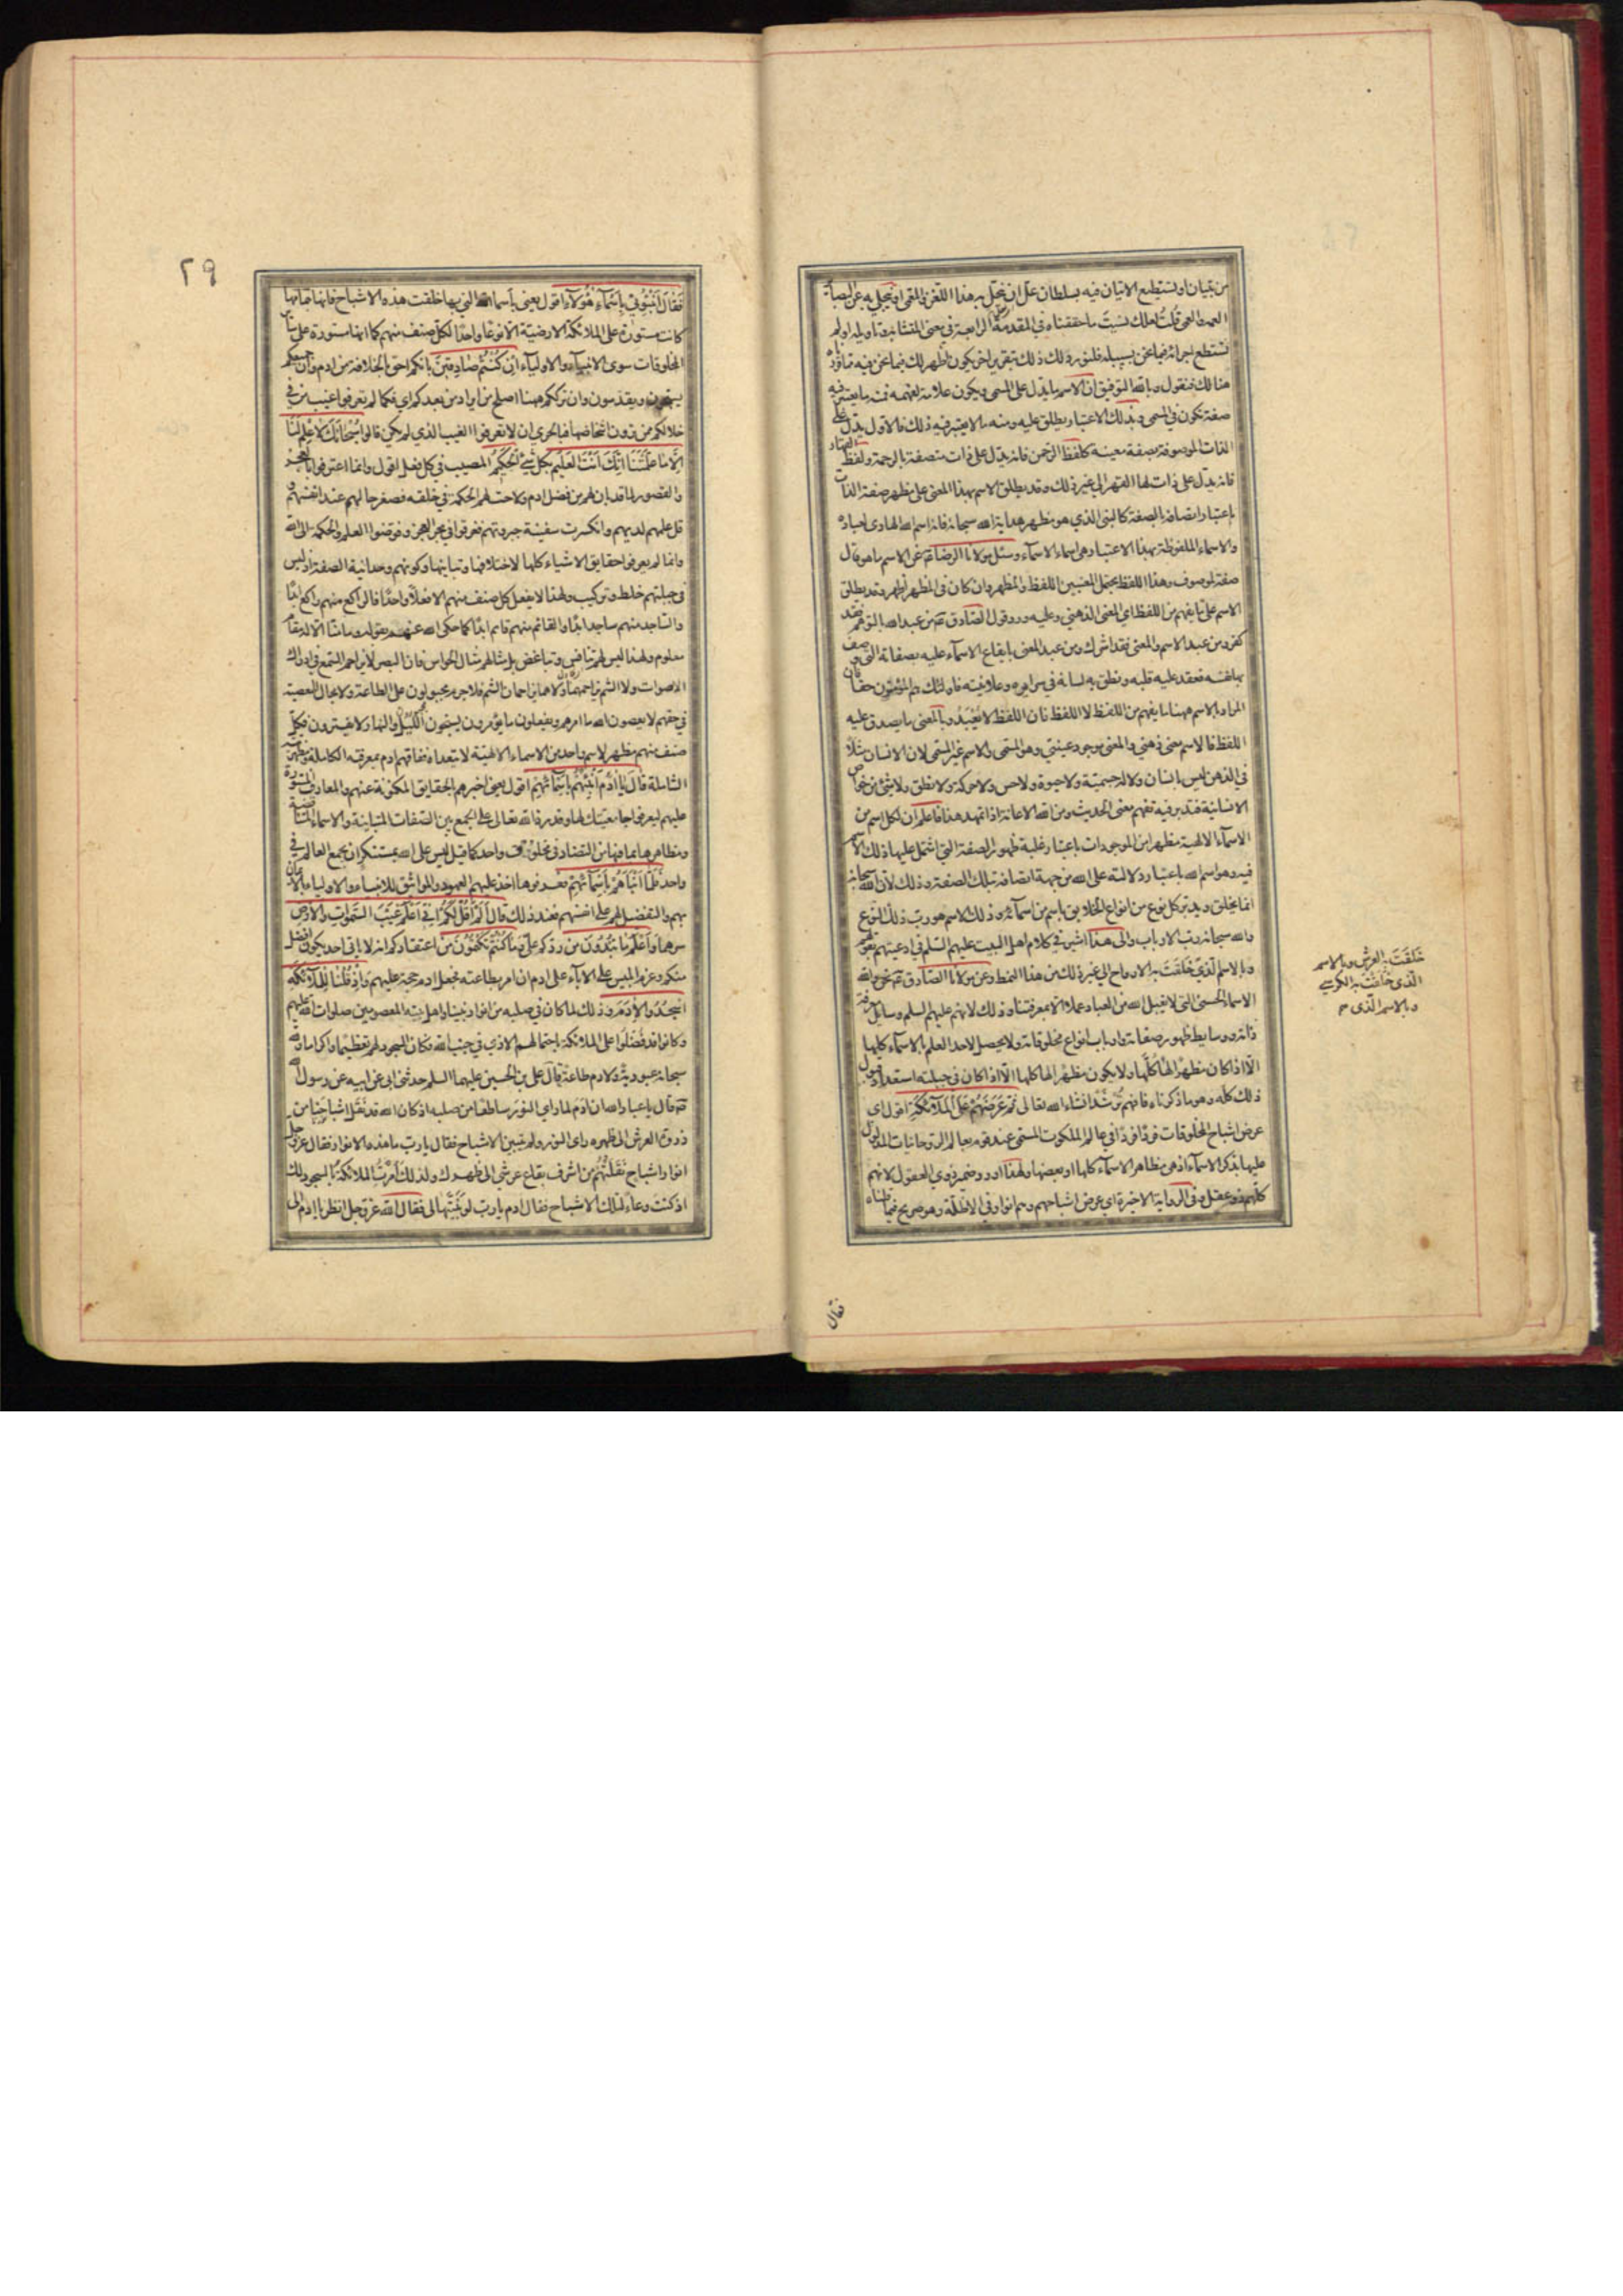 من تبيان او يستطيع الاتيان فيه بسلطان علّ ان ينحل به هذا اللغز والمعمى او ينجلي به عن البصائر
العمه والعمى قلت لعلك نسيت ما حققناه في المقدمة الرابعة في معنى المتشابه وتاويله او لم
تستطع اجرائه فيما نحن بسبيله فلنورد لك ذلك بتقرير اخر يكون اظهر لك فيما نحن فيه مما اوردناه
هنالك فنقول وبالله التوفيق ان الاسم ما يدل على المسمى ويكون علامة لفهمه فمنه ما يعتبر فيه
صفة تكون في المسمى وبذلك الاعتبار يطلق عليه ومنه ما لا يعتبر فيه ذلك فالاول يدل على
الذات الموصوفة بصفة معينة كلفظ الرحمن فانه يدل على ذات متصفة بالرحمة ولفظ القهار
فانه يدل على ذات لها القهر الى غير ذلك وقد يطلق الاسم بهذا المعنى على مظهر صفة الذات
باعتبار اتصافه بالصفة كالنبي الذي هو مظهر هداية الله سبحانه فانه اسم الله الهادي لعباده
والاسماء الملفوظة بهذا الاعتبار هي اسماء الاسماء وسئل مولانا الرضا عن الاسم ما هو قال
صفة لموصوف وهذا اللفظ يحتمل المعنيين اللفظ والمظهر وان كان في المظهر اظهر وقد يطلق
الاسم على ما يفهم من اللفظ اي المعنى الذهني وعليه ورد قول الصادق من عبد الله بالتوهم فقد
كفر ومن عبد الاسم والمعنى فقد اشرك ومن عبد المعنى بايقاع الاسماء عليه بصفاته التي وصف
بها نفسه فعقد عليه قلبه ونطق به لسانه في سرايره وعلانيته فاولئك هم المؤمنون حقا فان
المراد بالاسم ههنا ما يفهم من اللفظ لا اللفظ فان اللفظ لا يعبد وبالمعنى ما يصدق عليه
اللفظ فالاسم معنى ذهني والمعنى موجود عيني وهو المسمى والاسم غير المسمى لان الانسان مثلا
في الذهن ليس بانسان ولا له جسمية ولا حيوة ولا حس ولا حركة ولا نطق ولا شئ من خواص
الانسانية فتدبر فيه تفهم معنى الحديث ومن الله الاعانة اذا تمهد هذا فاعلم ان لكل اسم من
الاسماء الالهية مظهرا من الموجودات باعتبار غلبة ظهور الصفة التي اشتمل عليها ذلك الاسم
فيه وهو اسم الله باعتبار دلالته على الله من جهة اتصافه بتلك الصفة وذلك لان الله سبحانه
انما يخلق ويدبر كل نوع من انواع الخلايق باسم من اسمائه وذلك الاسم هو رب ذلك النوع
والله سبحانه رب الارباب والى هذا اشير في كلام اهل البيت عليهم السلم في ادعيتهم بقولهم
وبالاسم الذي خلقت به الارواح الى غير ذلك من هذا النمط وعن مولانا الصادق نحن والله
الاسماء الحسنى التي لا يقبل الله من العباد عملا الا بمعرفتنا وذلك لانهم عليهم السلم وسايل معرفة
ذاته ووسايط ظهور صفاته وارباب انواع مخلوقاته ولا يحصل لاحد العلم بالاسماء كلها
الا اذا كان مظهرا لها كلها ولا يكون مظهرا لها كلها الا اذا كان في جبلته استعداد قبول
ذلك كله وهو ما ذكرناه فافهم ترشد انشاء الله تعالى ثم عرضهم على الملائكة اقول اي
عرض اشباح المخلوقات فردا فردا في عالم الملكوت المسمى عند قوم بعالم الروحانيات المدلول
عليها بذكر الاسماء اذ هي مظاهر الاسماء كلها او بعضها ولهذا اورد ضمير ذوي العقول لانهم
كلهم ذو عقل وفي الرواية الاخيرة اي عرض اشباحهم وهم انوار في الاظلة وهو صريح فيما قلناه
خلقت به العرش وبالاسم
الذي خلقت به الكرسي
وبالاسم الذي
فقال
٢٩
فقال انبئوني باسماء هؤلاء اقول يعني باسماء الله التي بها خلقت هذه الاشباح فانها باسرها
كانت مستورة على الملائكة الارضية الا نوعا واحدا لكل صنف منهم كما انها مستورة على سائر
المخلوقات سوى الانبياء والاولياء ان كنتم صادقين بانكم احق بالخلافة من ادم وان جميعكم
يسبحون ويقدسون وان ترككم ههنا اصلح من ايراد من بعدكم اي فكما لم تعرفوا غيب من في
خلالكم من ترون اشخاصها فبالحري ان لا تعرفوا الغيب الذي لم يكن قالوا سبحانك لا علم لنا
الا ما علمتنا انك انت العليم بكل شئ الحكيم المصيب في كل فعل اقول وانما اعترفوا بالعجز
والقصور لما قد بان لهم من فضل ادم ولاحت لهم الحكمة في خلقه فصغر حالهم عند انفسهم و
قل علمهم لديهم وانكسرت سفينة جبروتهم فغرقوا في بحر العجز وفوضوا العلم والحكمة الى الله
وانما لم يعرفوا حقايق الاشياء كلها لاختلافها وتباينها وكونهم وحدانية الصفة اذ ليس
في جبلتهم خلط وتركيب ولهذا لا يفعل كل صنف منهم الا فعلا واحدا فالراكع منهم راكع ابدا
والساجد منهم ساجد ابدا والقائم منهم قايم ابدا كما حكى الله عنهم بقوله وما منا الا له مقام
معلوم ولهذا ليس لهم تنافس وتباغض بل مثالهم مثال الحواس فان البصر لا يزاحم السمع في ادراك
الاصوات ولا الشم يزاحمهما ولا هما يزاحمان الشم فلا جرم مجبولون على الطاعة ولا مجال للمعصية
في حقهم لا يعصون الله ما امرهم ويفعلون ما يؤمرون يسبحون الليل والنهار لا يفترون فكل
صنف منهم مظهر لاسم واحد من الاسماء الالهية لا يتعداه ففاقهم ادم بمعرفته الكاملة ومظهريته
الشاملة قال يا آدم انبئهم باسمائهم اقول يعني اخبرهم بالحقايق المكنونة عنهم والمعارف المستورة
عليهم ليعرفوا جامعيتك لها وقدرة الله تعالى على الجمع بين الصفات المتباينة والاسماء المتناقضة
ومظاهرها بما فيها من التضاد في مخلوق واحد كما قيل ليس على الله بمستنكر ان يجمع العالم في
واحد فلما انباهم باسمائهم فعرفوها اخذ عليهم العهود والمواثيق للانبياء والاولياء بالايمان
بهم والتفضيل لهم على انفسهم فعند ذلك قال الم اقل لكم اني اعلم غيب السموات والارض
سرهما واعلم ما تبدون من ردكم علي وما كنتم تكتمون من اعتقادكم انه لا ياتي احد يكون افضل
منكم وعزم ابليس على الاباء على ادم ان امر بطاعته فجعل ادم حجة عليهم واذ قلنا للملائكة
اسجدوا لادم وذلك لما كان في صلبه من انوار نبينا واهل بيته المعصومين صلوات الله عليهم
وكانوا قد فضلوا على الملائكة باحتمالهم الاذى في جنب الله فكان السجود لهم تعظيما واكراما ولله
سبحانه عبودية ولادم طاعة قال علي بن الحسين عليهما السلم حدثني ابي عن ابيه عن رسول الله
قال يا عباد الله ان ادم لما راى النور ساطعا من صلبه اذ كان الله قد نقل اشباحنا من
ذروة العرش الى ظهره راى النور ولم يتبين الاشباح فقال يا رب ما هذه الانوار فقال عز وجل
انوار اشباح نقلتهم من اشرف بقاع عرشي الى ظهرك ولذلك امرت الملائكة بالسجود لك
اذ كنت وعاء لتلك الاشباح فقال ادم يا رب لو بينتها لي فقال الله عز وجل انظر يا ادم الى